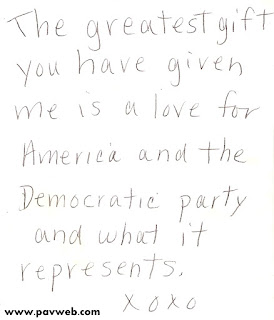 The greatest gift
you have given
me is a love for
America and the
Democratic party
and what it
represents.
xoxo
www.pavweb.com